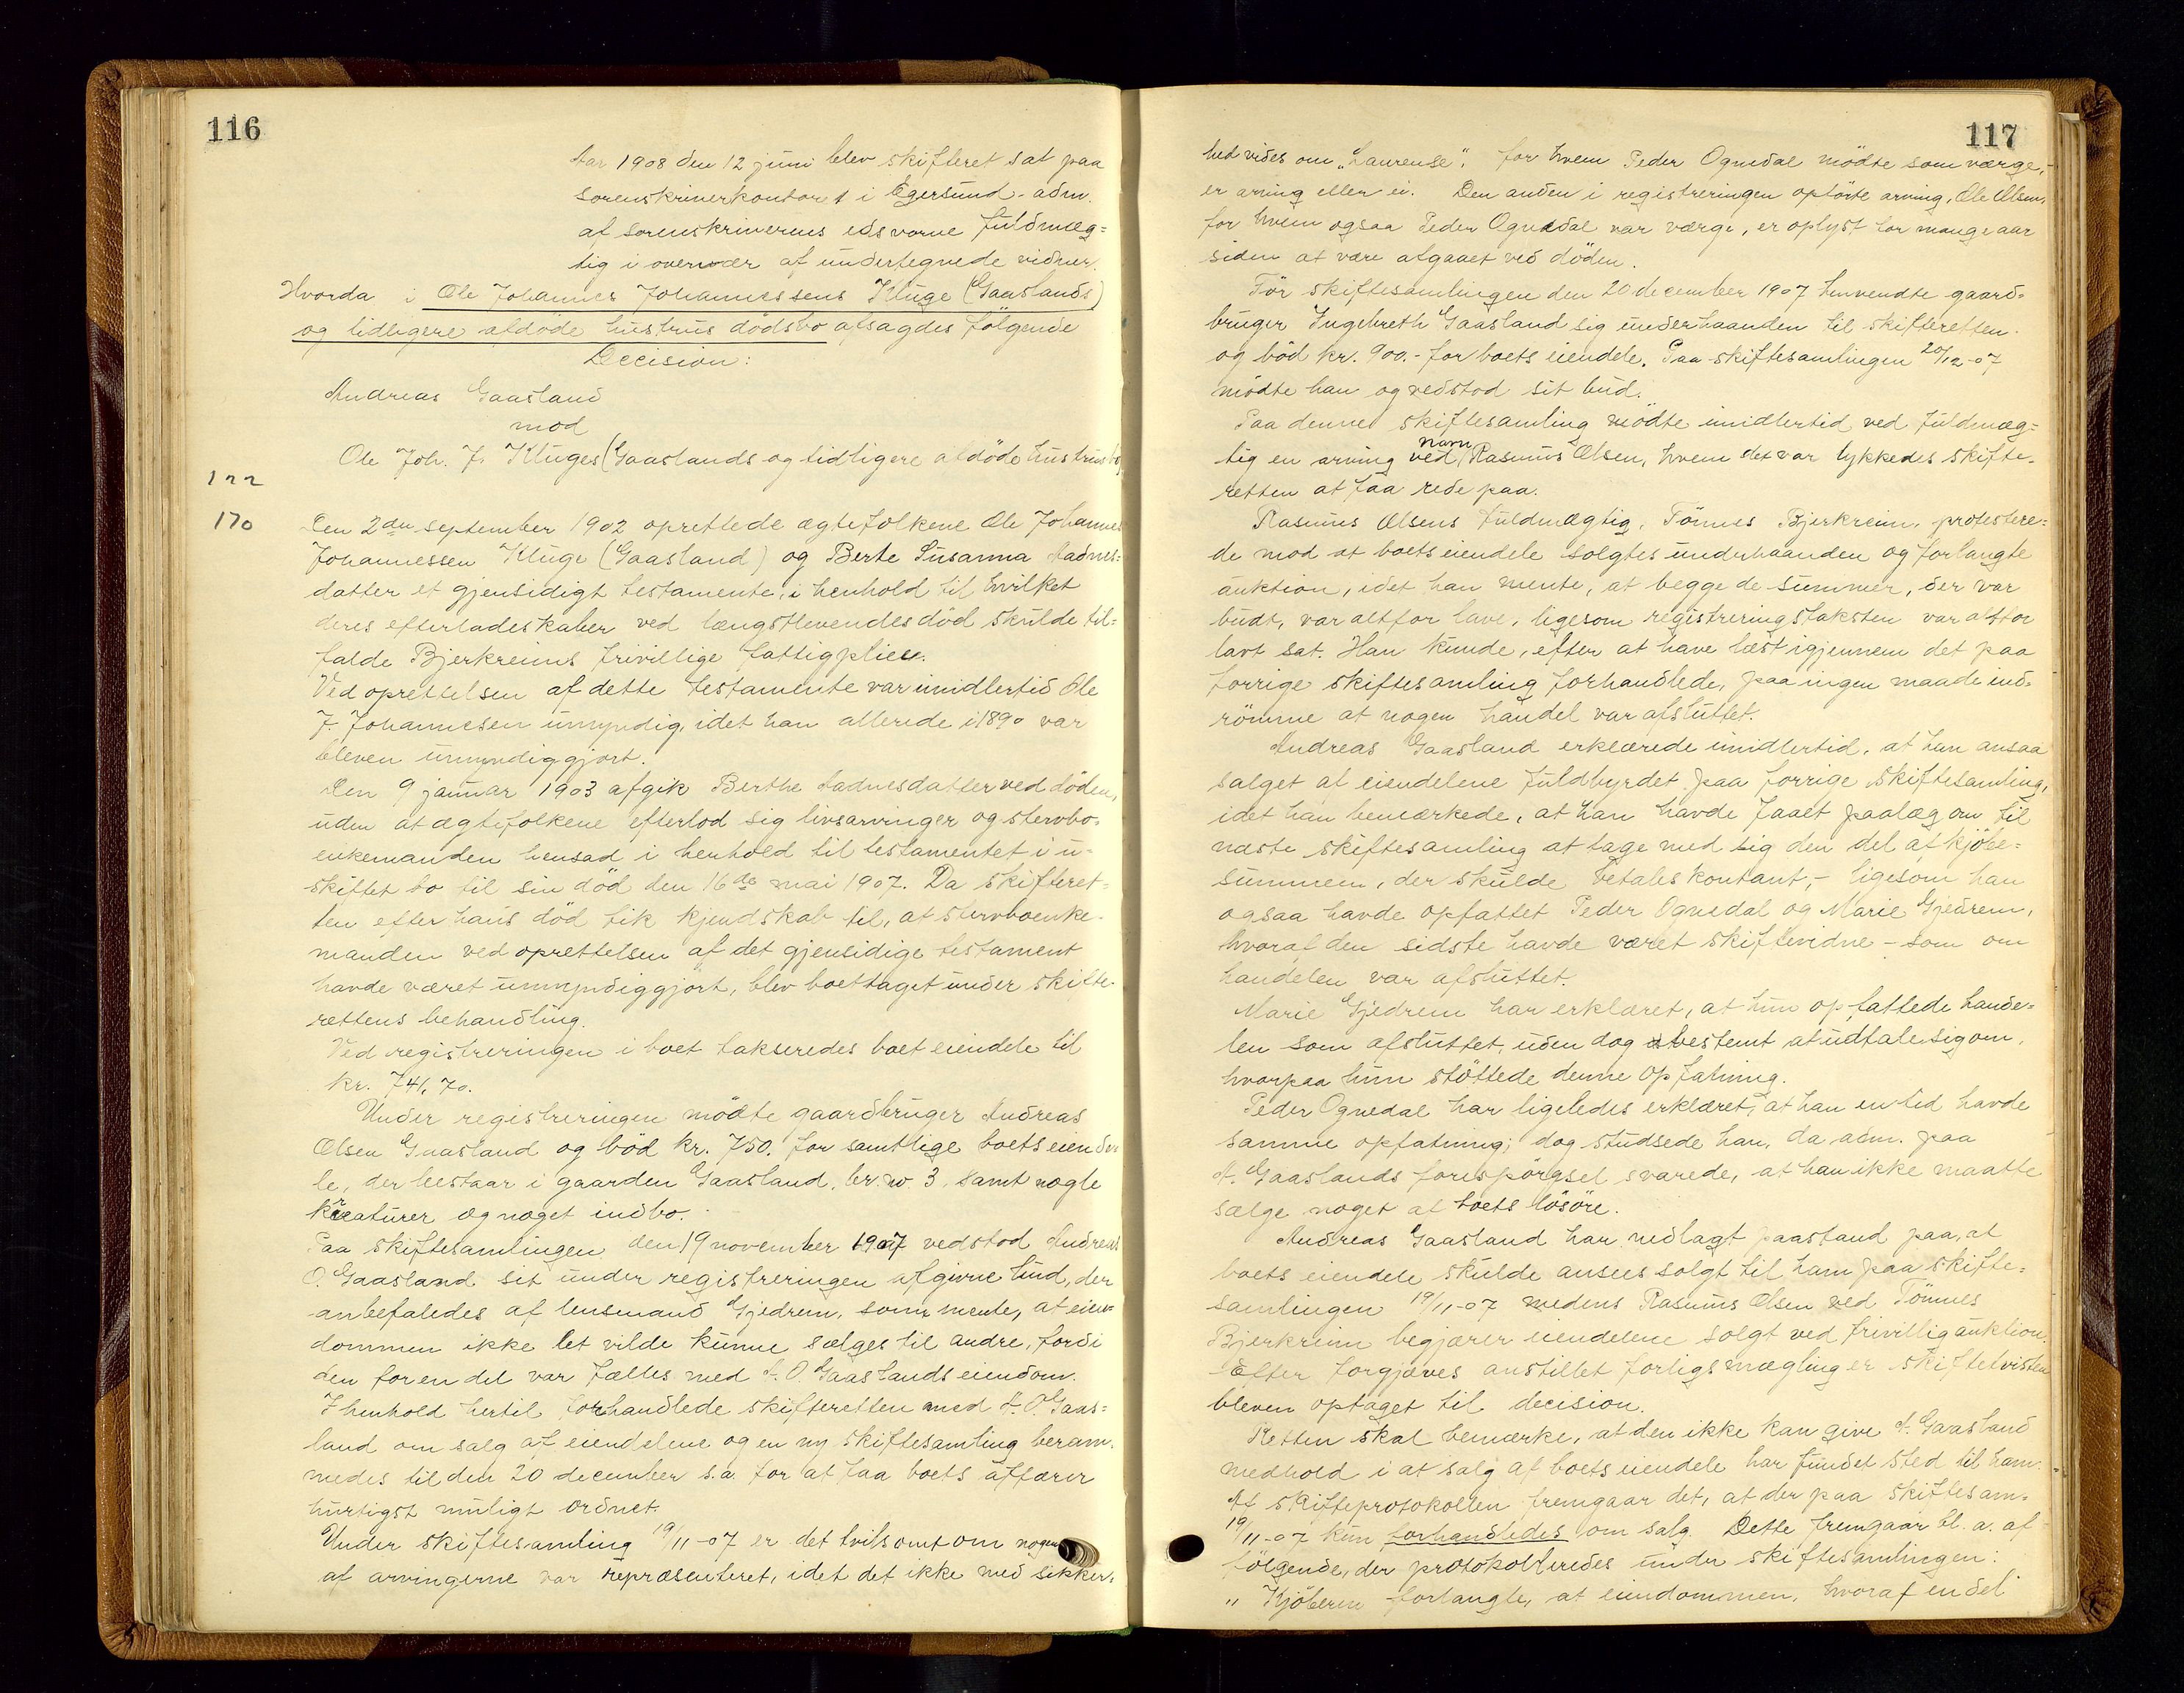 116
Aar 1908 den 12 juni blev skifteret sat paa
sorenskriverkontoret i Egersund. adm.
af sorenskriverens edsvorne fuldmæg=
tig i overvær af undertegnede vidner.
Hvorda i Ole Johannes Johannessens Kluge (Gaaslands)
og tidligere afdöde hustrus dödsbo afsagdes fölgende
Decision:
Andreas Gaasland
mod
Ole Joh. J. Kluges (Gaaslands og tidligere afdöde hustrus bo
122
170
Den 2den september 1902 oprettede ægtefolkene Ole Johannes
Johannessen Kluge (Gaasland) og Berte Susanna Aadnes=
datter et gjensidigt testamente, i henhold til hvilket
deres efterladeskaber ved længstlevendes död skulde til=
falde Bjerkreims frivillige fattigpleie.
Ved oprettelsen af dette testamente var imidlertid Ole
J. Johannesen umyndig, idet han allerede i 1890 var
bleven umyndiggjort.
Den 9 januar 1903 afgik Berthe Aadnesdatter ved döden,
uden at ægtefolkene efterlod sig livsarvinger og stervbo=
enkemanden hensad i henhold til testamentet i u=
skiftet bo til sin död den 16de mai 1907. Da skifteret=
ten efter hans död fik kjendskab til, at stervboenke=
manden ved oprettelsen af det gjensidige testament
havde været umyndiggjort, blev boet taget under skifte=
rettens behandling.
Ved registreringen i boet takseredes boet eiendele til
kr. 741,70.
Under registreringen mödte gaardbruger Andreas
Olsen Gaasland og böd kr. 750. for samtlige boets eiende
le, der bestaar i gaarden Gaasland, br. no. 3. samt nogle
kreaturer og noget indbo.
Paa skiftesamlingen den 19 november 1907 vedstod Andreas
O. Gaasland sit under registreringen afgivne bud, der
anbefaledes af lensmand Gjedrem, som mente, at eien=
dommen ikke let vilde kunne sælges til andre, fordi
den for en del var fælles med A. O. Gaaslands eiendom.
I henhold hertil forhandlede skifteretten med A. O. Gaas=
land om salg af eiendelene og en ny skiftesamling beram=
medes til den 20 december s.a. for at faa boets affærer
hurtigst muligt ordnet.
Under skiftesamling 19/11-07 er det tvilsomt om nogen
af arvingerne var repræsenteret, idet det ikke med sikker=
117
hed vides om "Laurense". for hvem Peder Ognedal mödte som værge,
er arving eller ei. Den anden i registreringen opförte arving, Ole Olsen,
for hvem ogsaa Peder Ognedal var værge, er oplyst for mange aar
siden at være afgaaet ved döden.
För skiftesamlingen den 20 december 1907 henvendte gaard=
bruger Ingebreth Gaasland sig underhaanden til skifteretten
og böd kr. 900.- for boets eiendele. Paa skiftesamlingen 20/12-07
mödte han og vedstod sit bud.
Paa denne skiftesamling mödte imidlertid ved fuldmæg=
tig en arving ved navn Rasmus Olsen, hvem det var lykkedes skifte=
retten at faa rede paa.
Rasmus Olsens fuldmægtig, Tönnes Bjerkreim, protestere=
de mod at boets eiendele solgtes underhaanden og forlangte
auktion, idet han mente, at begge de summer, der var
budt, var altfor lave, ligesom registreringstaksten var altfor
lavt sat. Han kunde, efter at have læst igjennem det paa
forrige skiftesamling forhandlede, paa ingen maade ind=
römme at nogen handel var afsluttet.
Andreas Gaasland erklærede imidlertid, at han ansaa
salget af eiendelene fuldbyrdet paa forrige skiftesamling,
idet han bemærkede, at han havde faaet paalæg om til
næste skiftesamling at tage med sig den del af kjöbe=
summen, der skulde betales kontant, - ligesom han
ogsaa havde opfattet Peder Ognedal og Marie Gjedrem,
hvoraf den sidste havde været skiftevidne - som om
handelen var afsluttet.
Marie Gjedrem har erklæret, at hun opfattede hande=
len som afsluttet, uden dog bestemt at udtale sig om,
hvorpaa hun stöttede denne opfatning.
Peder Ognedal har ligeledes erklæret, at han en tid havde
samme opfatning; dog studsede han, da adm. paa
A. Gaaslands forespörgsel svarede, at han ikke maatte
sælge noget af boets lösöre.
Andreas Gaasland har nedlagt paastand paa, at
boets eiendele skulde ansees solgt til ham paa skifte=
samlingen 19/11-07 medens Rasmus Olsen ved Tönnes
Bjerkreim begjærer eiendelene solgt ved frivillig auktion.
Efter forgjæves anstillet forligsmægling er skiftetvisten
bleven optaget til decision.
Retten skal bemærke, at den ikke kan give A. Gaasland
medhold i at salg af boets eiendele har fundet sted til ham.
Af skifteprotokollen fremgaar det, at der paa skiftesam=
19/11-07 kun forhandledes om salg. Dette fremgaar bl. a. af
fölgende, der protokolleredes under skiftesamlingen:
" Kjöberen forlangte, at eiendommen, hvoraf en del